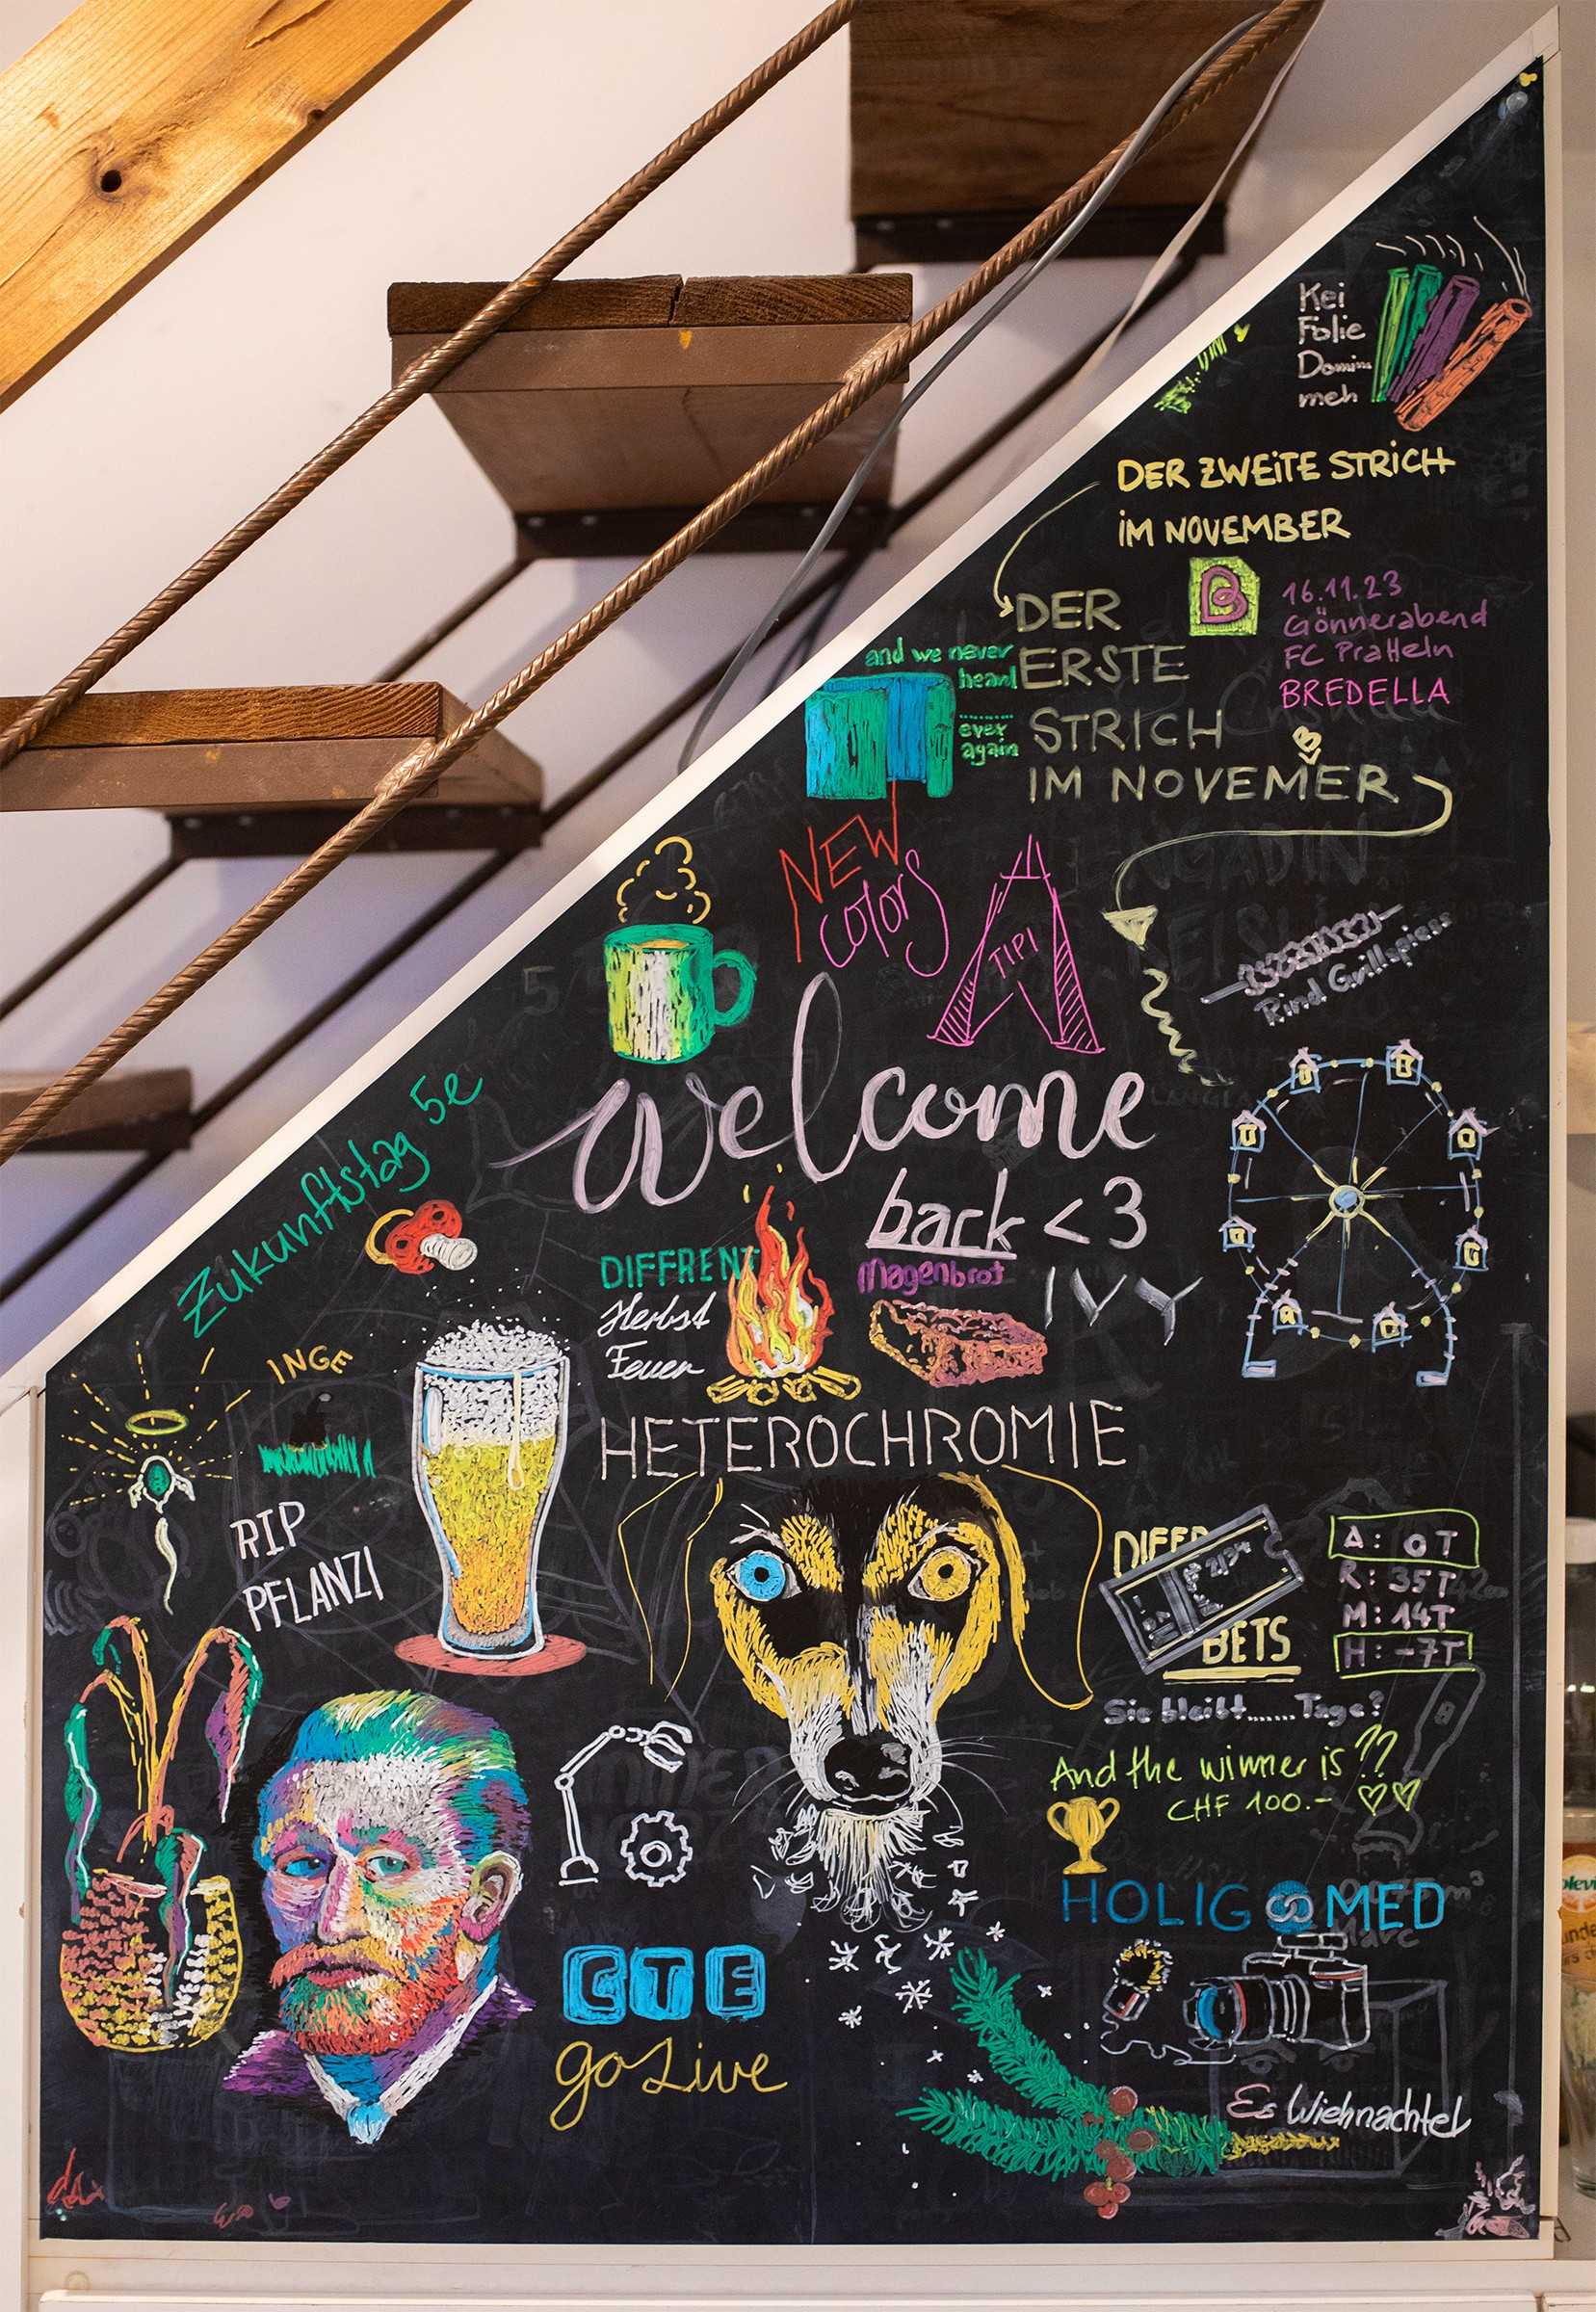 Kei
Folie
Domino
meh
DER ZWEITE STRICH
IM NOVEMBER
DER
ERSTE
STRICH
IM NOVEMER
B
B
16.11.23
Gönnerabend
FC Pratteln
BREDELLA
and we never
heard
ever
again
NEW
colors
TIPI
Rind Grillspiess
Welcome
back <3
Zukunftstag 5e
DIFFRENT
Herbst
Feuer
Magenbrot
IVY
INGE
HETEROCHROMIE
RIP
PFLANZI
DIFFR
BETS
A: 0T
R: 35T
M: 14T
H: -7T
Sie bleibt......Tage?
And the winner is ??
CHF 100.-
HOLIGOMED
CTE
go Live
Es Wiehnachtel